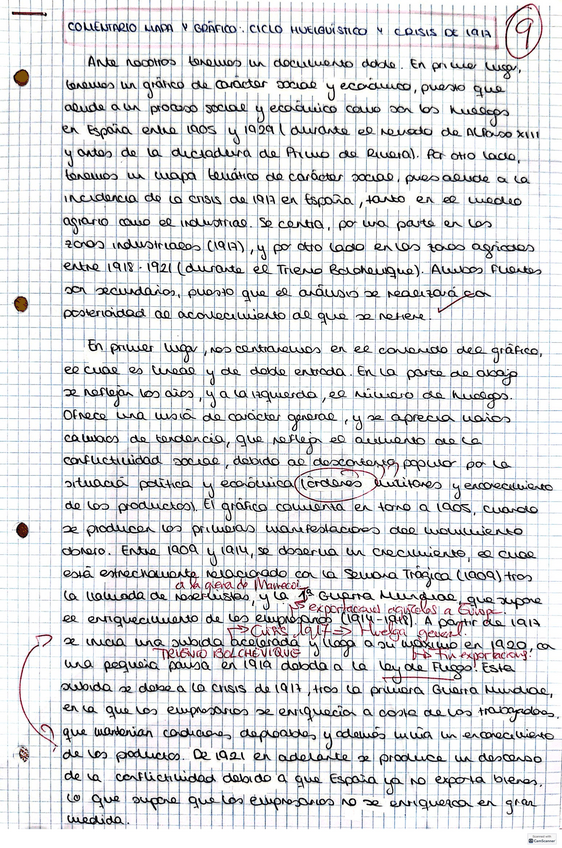 COMENTARIO MAPA Y GRÁFICO: CICLO HUELGUÍSTICO Y CRISIS DE 1917
9
Ante nosotros tenemos un documento doble. En primer lugar,
tenemos un gráfico de carácter social y económico, puesto que
alude a un proceso social y económico como son las huelgas
en España entre 1905 y 1929 (durante el reinado de Alfonso XIII
y antes de la dictadura de Primo de Rivera). Por otro lado,
tenemos un mapa temático de carácter social, pues alude a la
incidencia de la crisis de 1917 en España, tanto en el medio
agrario como el industrial. Se centra, por una parte en las
zonas industriales (1917), y por otro lado en las zonas agrícolas
entre 1918-1921 (durante el Trienio Bolchevique). Ambas fuentes
son secundarias, puesto que el análisis se realizará con
posterioridad al acontecimiento al que se refiere.
En primer lugar, nos centraremos en el contenido del gráfico,
el cual es lineal y de doble entrada. En la parte de abajo
se reflejan los años, y a la izquierda, el número de huelgas.
Ofrece una visión de carácter general, y se aprecia varios
cambios de tendencia, que refleja el aumento de la
conflictividad social, debido al descontento popular por la
situación política y económica (órdenes militares y encarecimiento
de los productos). El gráfico comienza en torno a 1905, cuando
se producen las primeras manifestaciones del movimiento
obrero. Entre 1909 y 1914, se observa un crecimiento, el cual
está estrechamente relacionado con la Semana Trágica (1909) tras
a la guerra de Marruecos
la llamada de reservistas, y la 1ª Guerra Mundial, que supone
→ exportaciones agrícolas a Europa
el enriquecimiento de los empresarios (1914-1918). A partir de 1917
→ Crisis 1917 ⇒ Huelga general
se inicia una subida acelerada y llega a su máximo en 1920, con
TRIENIO BOLCHEVIQUE
→ fin exportación
una pequeña pausa en 1919 debida a la ley de Fugas. Esta
subida se debe a la crisis de 1917, tras la primera Guerra Mundial,
en la que los empresarios se enriquecía a costa de los trabajadores,
que mantenían condiciones deplorables y además había un encarecimiento
de los productos. De 1921 en adelante se produce un descenso
de la conflictividad debido a que España ya no exporta bienes,
lo que supone que los empresarios no se enriquezca en gran
medida.
CamScanner